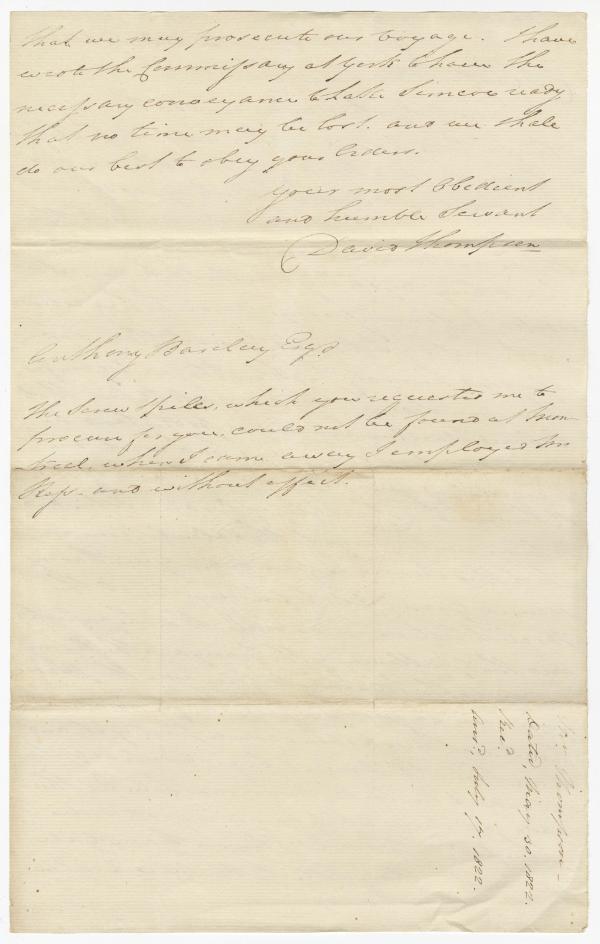 that we may prosecute our voyage. I have
wrote the Commissary at York to have the
necessary conveyance to Lake Simcoe ready
that no time may be lost. and we shall
do our best to obey your Orders.
Your most Obedient
and humble Servant
David Thompson
Anthony Barclay Esqr
The Screw which you requested me to
procure for you, could not be found at Mon
treal, when I came away I employed Mr
and without effect.
Mr. Thompson
Dated, May 30. 1822.
Rec'd
Ans'd, July 17. 1822.